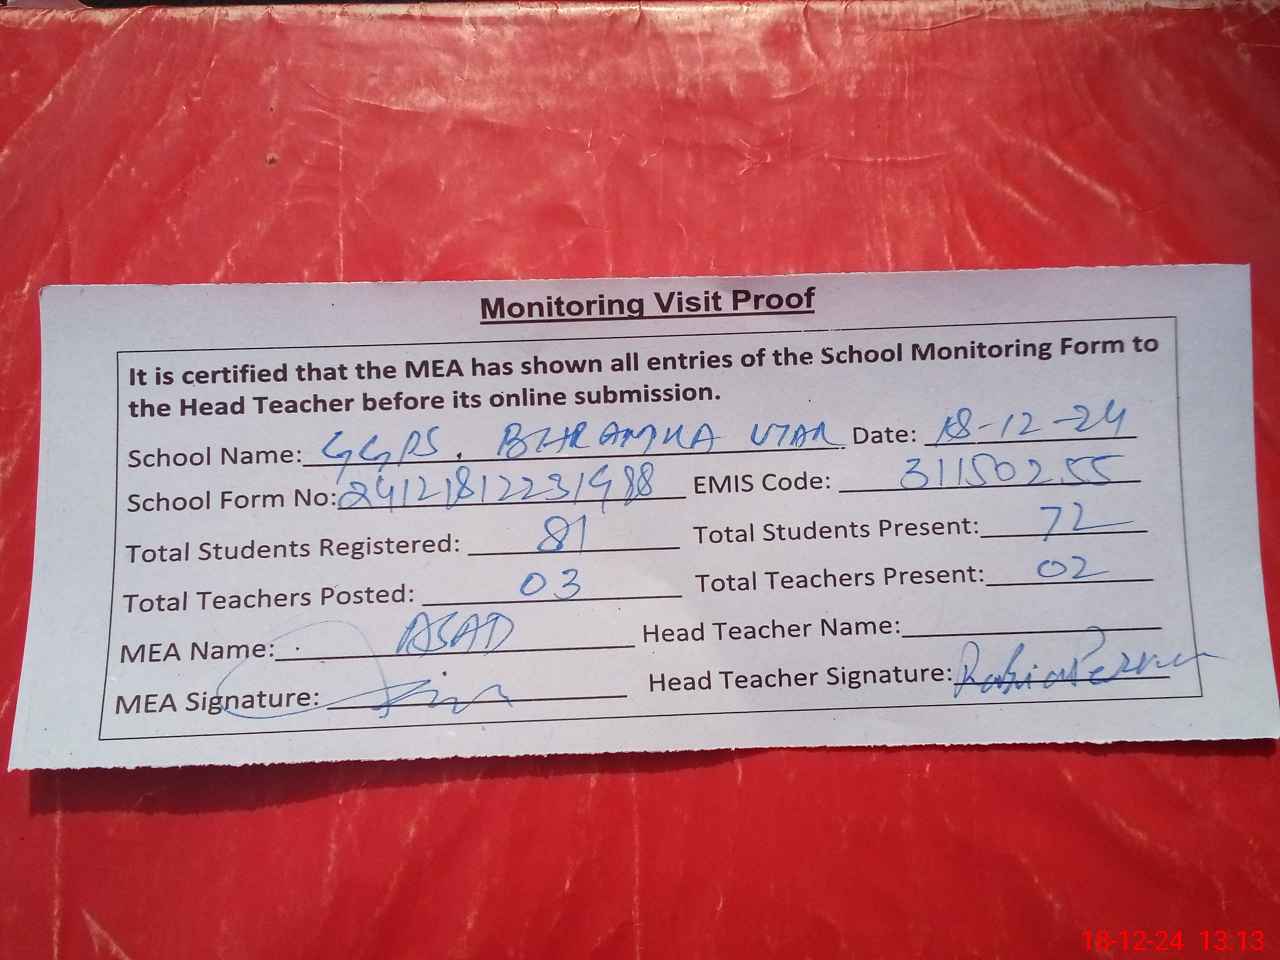 Monitoring Visit Proof
It is certified that the MEA has shown all entries of the School Monitoring Form to
the Head Teacher before its online submission.
School Name: GGPS, Date: 18-12-24
School Form No: 24121812231988 EMIS Code: 31150255
Total Students Registered: 81 Total Students Present: 72
Total Teachers Posted: 03 Total Teachers Present: 02
MEA Name: ASAD Head Teacher Name:
MEA Signature: Head Teacher Signature: Rabia
18-12-24 13:13